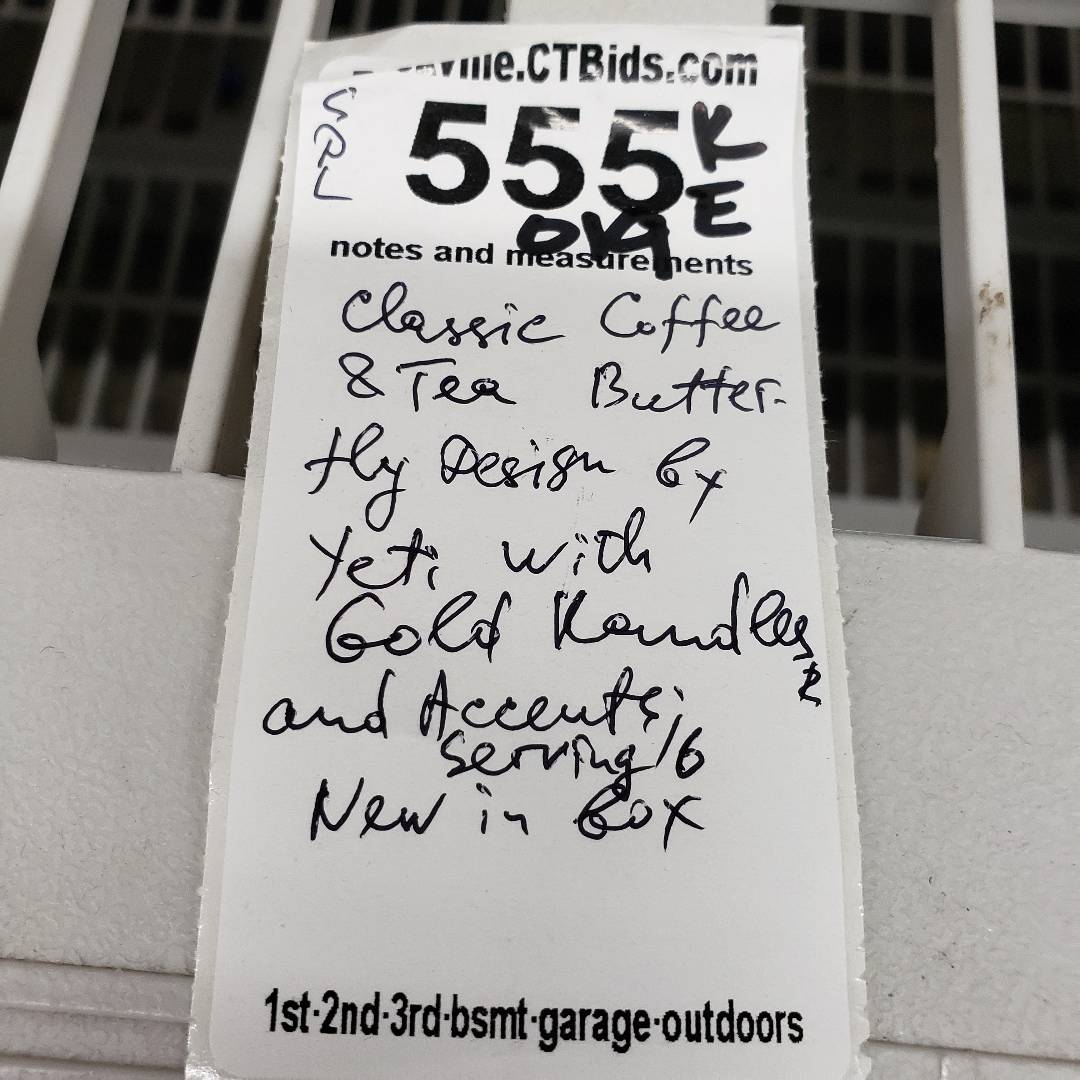 ville.CTBids.com
555
K
E
notes and measurements
Classic Coffee
& Tea Butter-
fly Design by
Yeti with
Gold Handles
and Accents;
serving/6
New in box
1st·2nd·3rd·bsmt·garage·outdoors